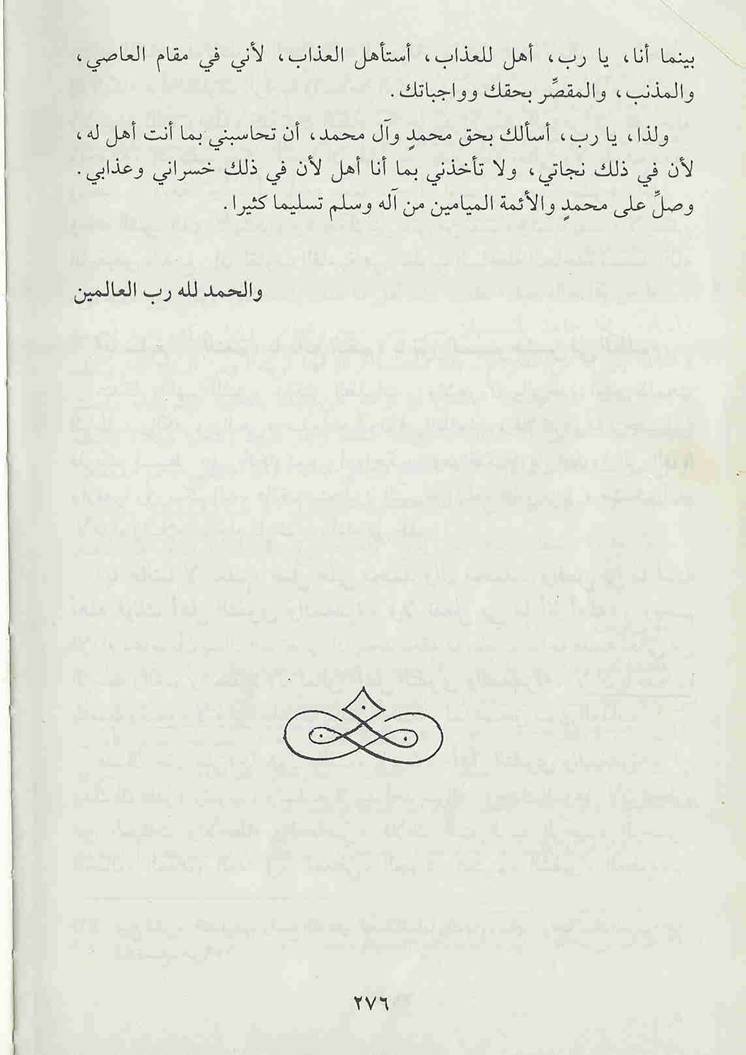 بينما أنا، يا رب، أهل للعذاب، أستأهل العذاب، لأني في مقام العاصي،
والمذنب، والمقصِّر بحقك وواجباتك.
ولذا، يا رب، أسألك بحق محمدٍ وآل محمد، أن تحاسبني بما أنت أهل له،
لأن في ذلك نجاتي، ولا تأخذني بما أنا أهل لأن في ذلك خسراني وعذابي.
وصلِّ على محمدٍ والأئمة الميامين من آله وسلم تسليما كثيرا.
والحمد لله رب العالمين
٢٧٦